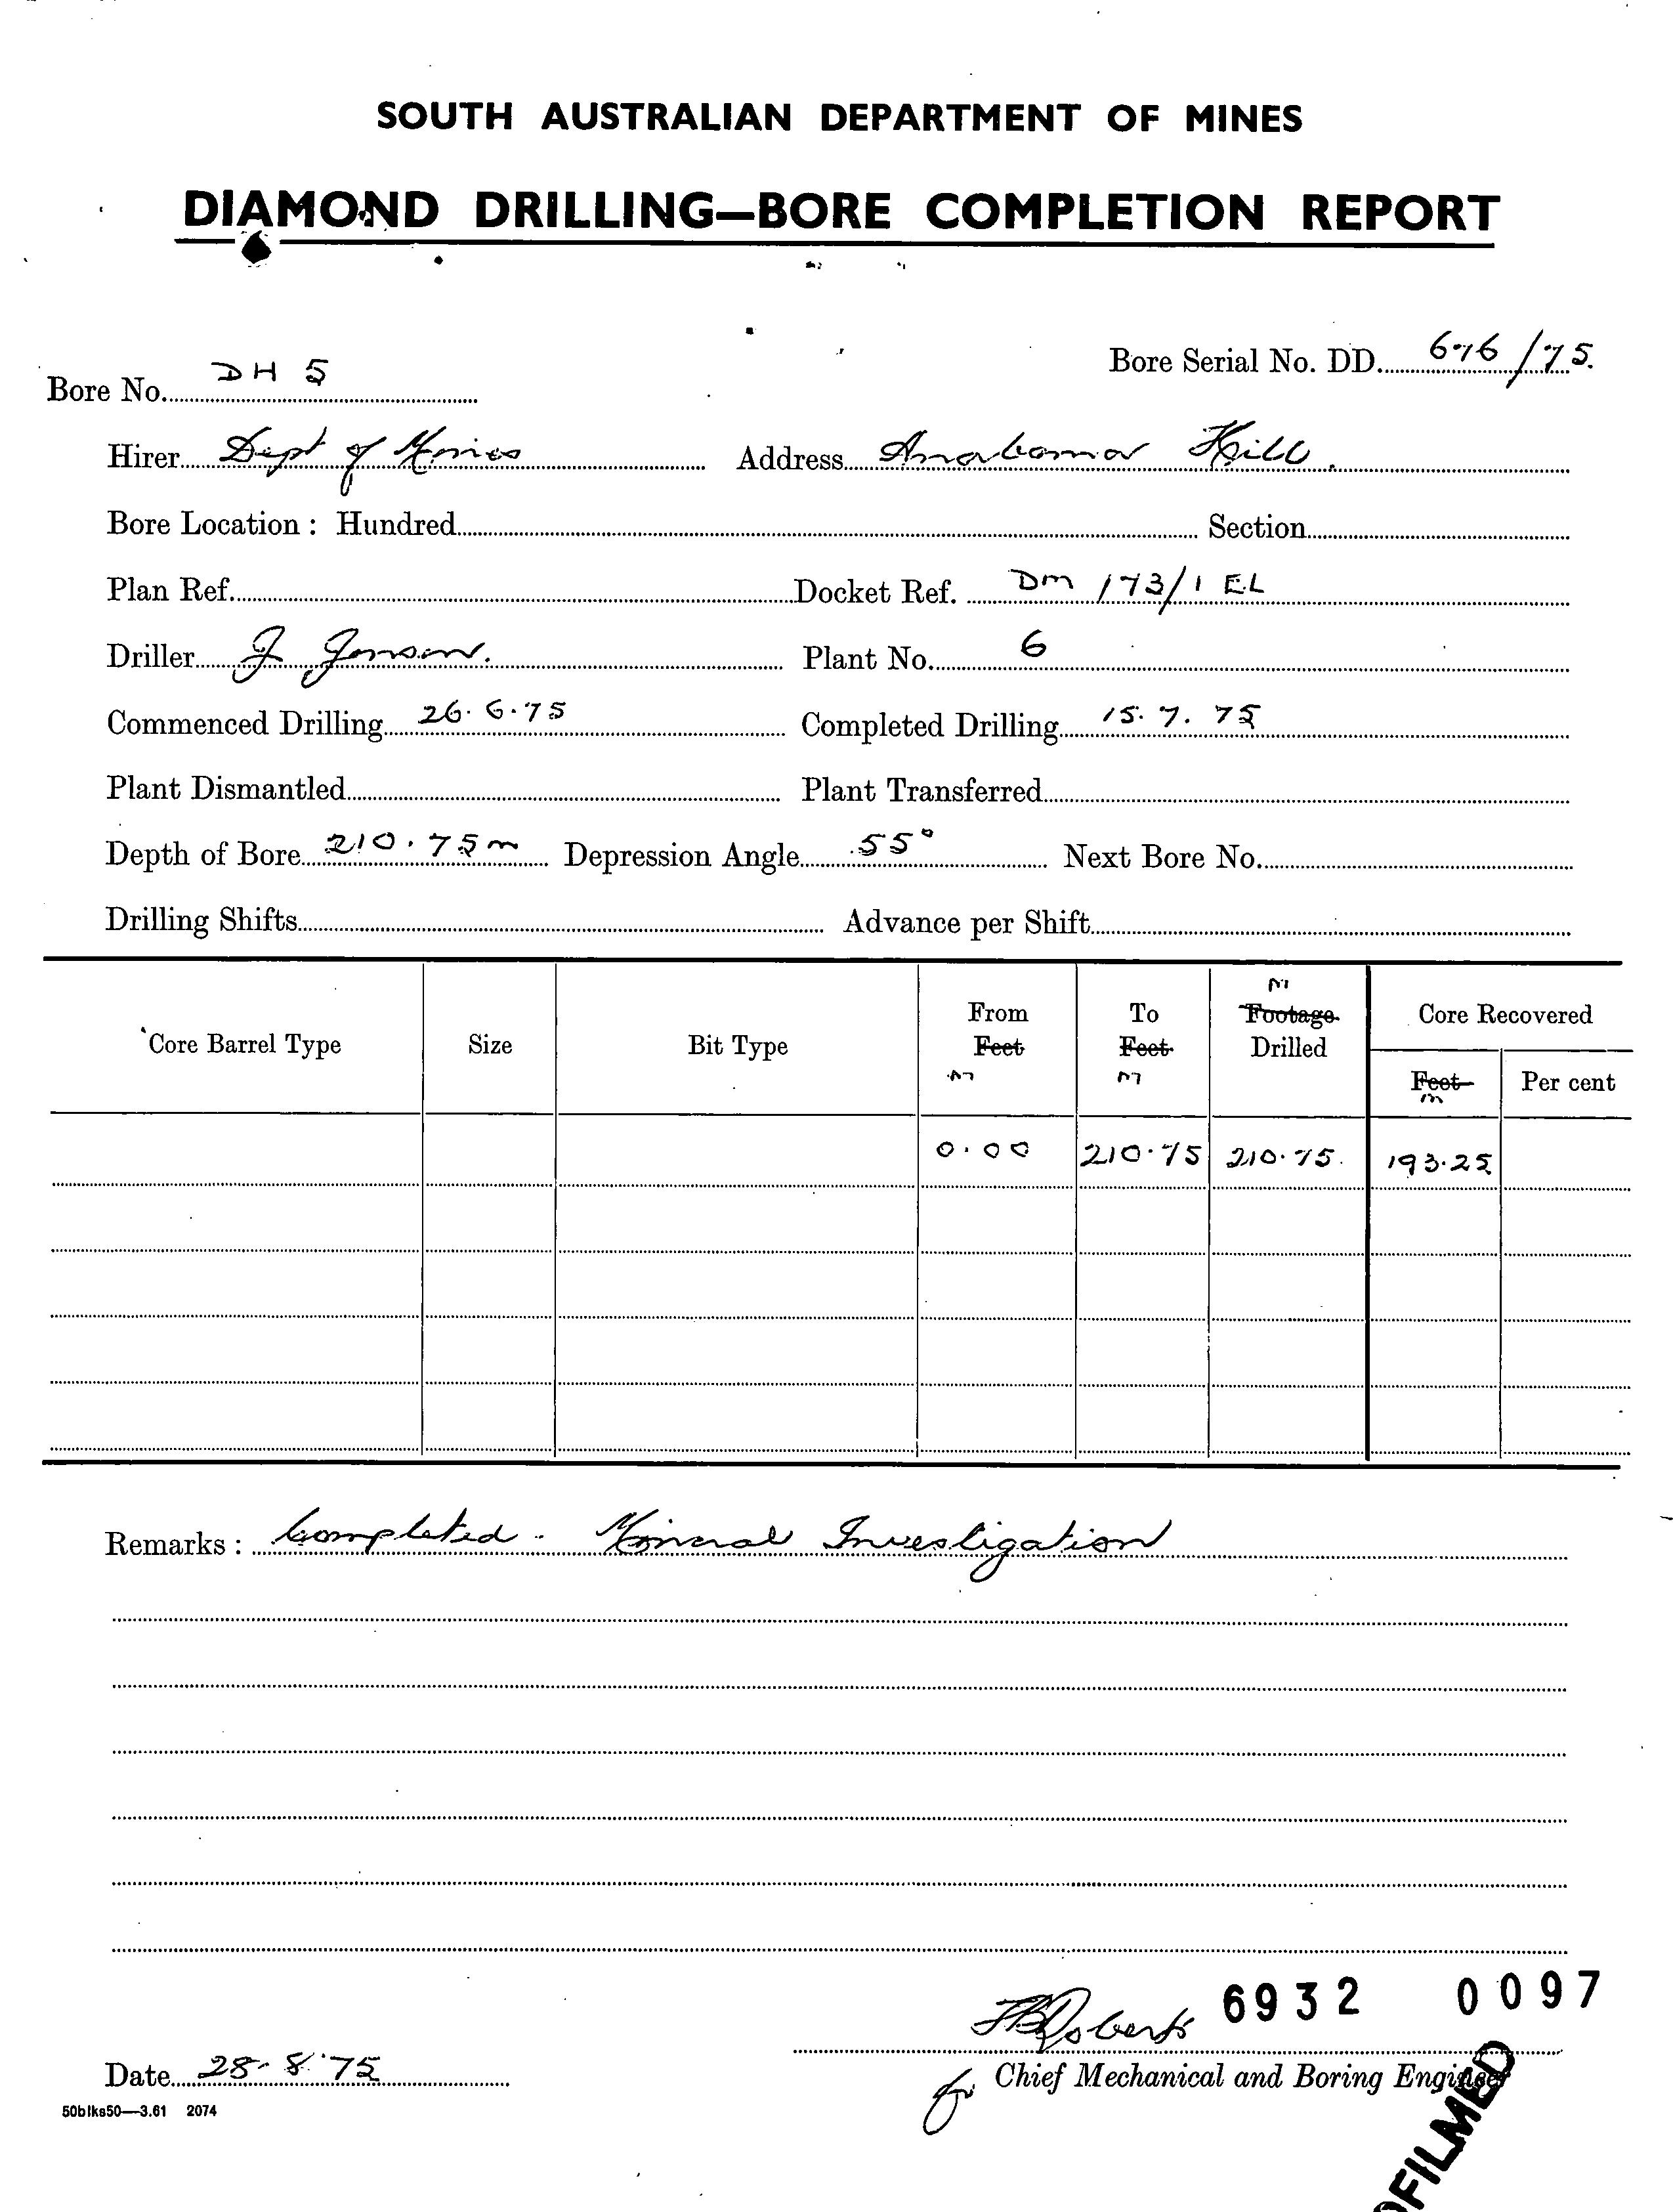 SOUTH AUSTRALIAN DEPARTMENT OF MINES
DIAMOND DRILLING—BORE COMPLETION REPORT
Bore No. DH 5 Bore Serial No. DD. 676/75.
Hirer Dept of Mines Address Anabama Hill.
Bore Location : Hundred Section
Plan Ref. Docket Ref. DM 173/1 EL
Driller J Jonson. Plant No. 6
Commenced Drilling 26.6.75 Completed Drilling 15.7.75
Plant Dismantled Plant Transferred
Depth of Bore 210.75m Depression Angle 55° Next Bore No.
Drilling Shifts Advance per Shift
Core Barrel Type Size Bit Type From Feet m To Feet m m Footage Drilled Core Recovered
Feet m Per cent
0.00 210.75 210.75. 193.25
Remarks : Completed - Mineral Investigation
6932 0097
J B Roberts
Date 28.8.75 for Chief Mechanical and Boring Engineer
50blks50—3.61 2074
OFILMED